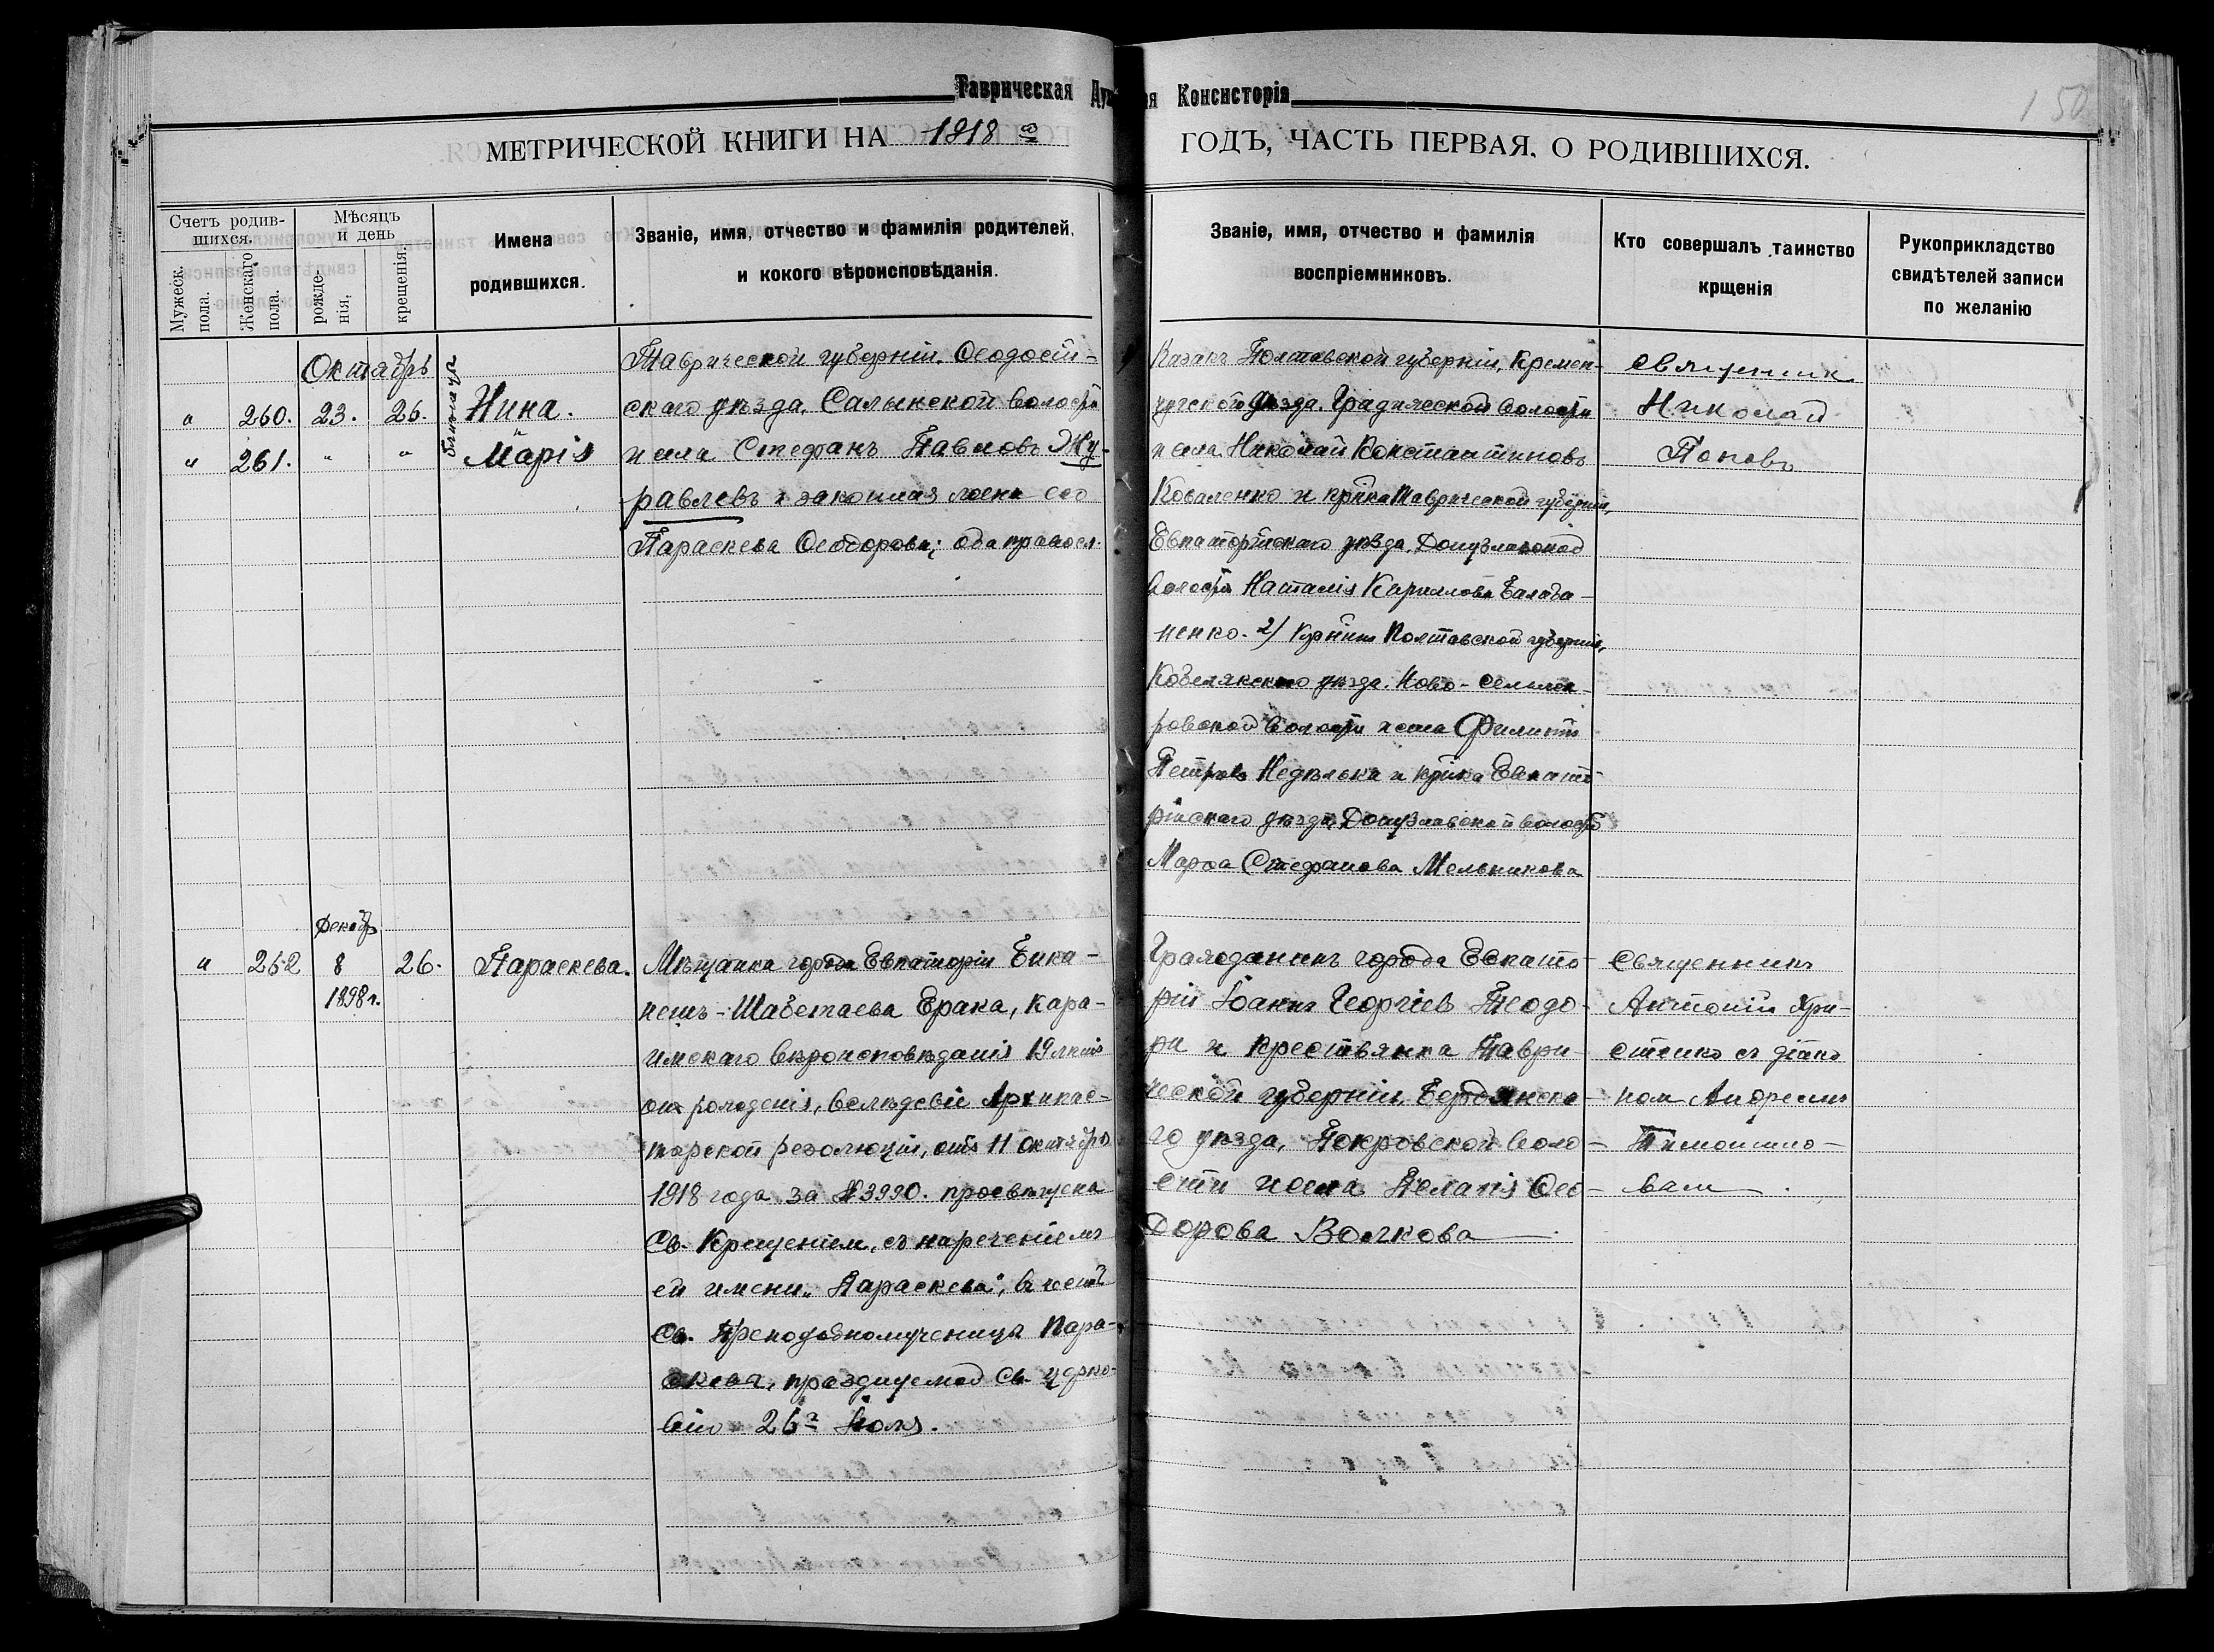 Таврическая Дух
ая Консисторія
150
МЕТРИЧЕСКОЙ КНИГИ НА 1918 й
ГОДЪ, ЧАСТЬ ПЕРВАЯ, О РОДИВШИХСЯ.
Счетъ родив-
шихся.
Мужеск.
пола.
Женскаго
пола.
Мѣсяцъ
и день
рожде-
нія.
крещенія.
Имена
родившихся.
Званіе, имя, отчество и фамилія родителей,
и кокого вѣроисповѣданія.
Званіе, имя, отчество и фамилія
воспріемниковъ.
Кто совершалъ таинство
крщенія
Рукоприкладство
свидѣтелей записи
по желанію
Октябрь
" 260. 23. 26.
" 261. " "
близнецы
Нина.
Марія
Таврической губерніи, Ѳеодосій-
скаго уѣзда, Салынской волости
Стефанъ Павловъ Жу-
равлевъ и законная жена его
Параскева Ѳеодорова; оба правосл.
Казакъ Полтавской губерніи, Кремен-
чугской уѣзда, Градижской волости
Николай Константиновъ
Коваленко и Таврической губерніи,
Евпаторійскаго уѣзда, Донузлавской
волости Наталія Кириллова Балаба-
ненко. 2) Полтавской губерніи,
Кобелякскаго уѣзда, Ново-
ровской волости Филиппъ
Петровъ Недѣлька и Евпато-
рійскаго уѣзда, Донузлавской волости
Марѳа Стефанова Мельникова
Священник
Николай
Поповъ
Декабр
" 262 8 26.
1898 г.
Параскева.
Мѣщанка города Евпаторіи Бика-
нешъ-Шабетаева Ерака, кара-
имскаго вѣроисповѣданія 19 лѣтъ
отъ рожденія, вслѣдсвіе Архипас-
тырской резолюціи, отъ 11 октября
1918 года за № 3990. просвѣщена
Св. Крещеніем, съ нареченіемъ
ей имени "Параскева", въ честь
Св. Преподобномученицы Пара-
скева, празднуемой Св. церко-
вію 26го Іюля.
Гражданинъ города Евпато-
ріи Іоаннъ Георгіев Теодо-
ри и крестьянка Таври-
ческой губерніи, Бердянска-
го уѣзда, Покровской воло-
сти Пелагія Ѳео-
дорова Волкова
Священникъ
Антоній Хри-
стенко съ діако
ном Андреемъ
Тимошино-
вым.